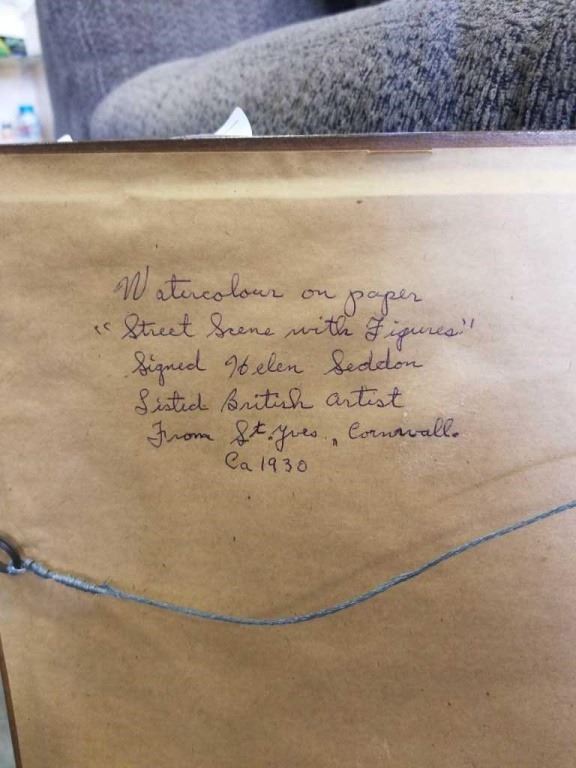 Watercolour on paper
"Street Scene with Figures"
Signed Helen Seddon
Listed British artist
From St. Yves, Cornwall.
Ca 1930